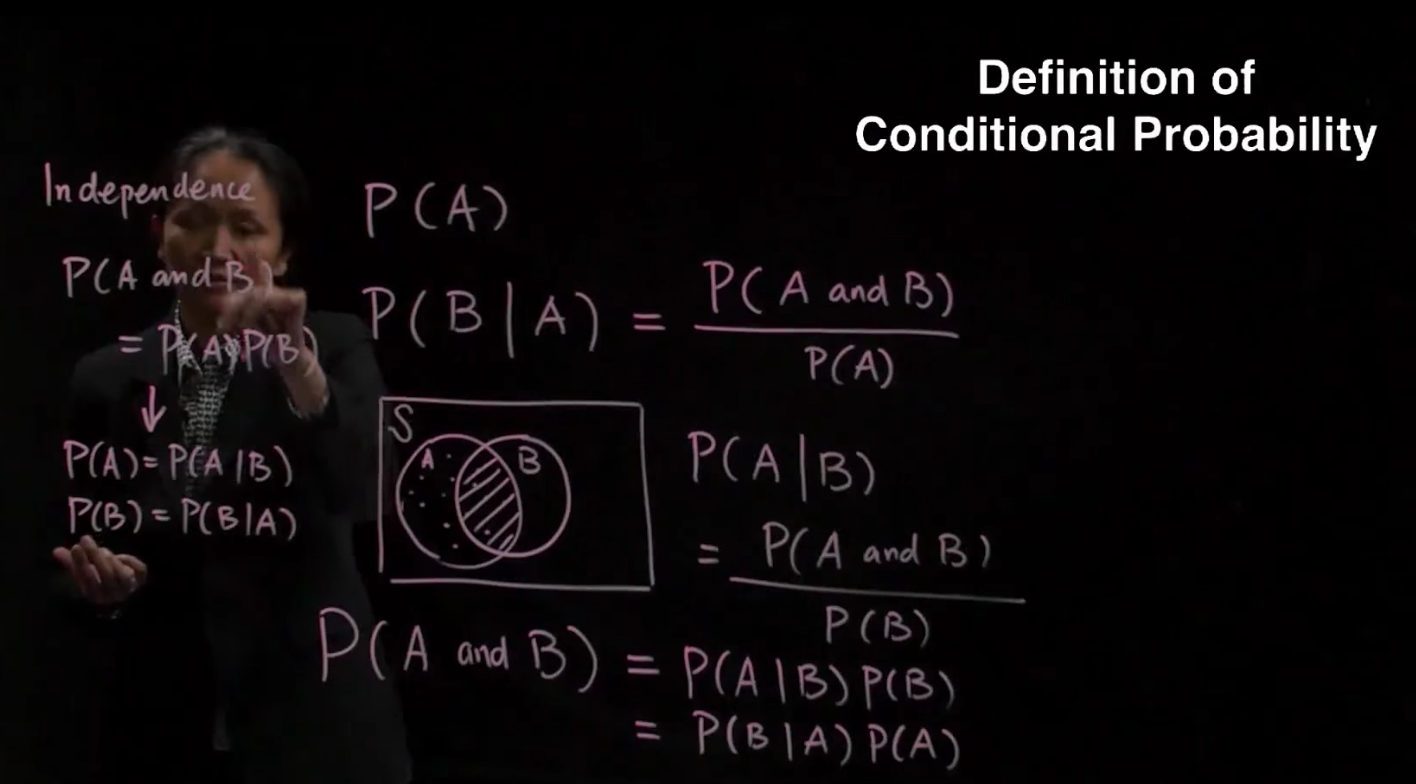 Definition of
Conditional Probability
Independence
P(A and B)
= P(A)P(B)
↓
P(A) = P(A|B)
P(B) = P(B|A)
P(A)
P(B|A) = P(A and B)
P(A)
S
A
B
P(A|B)
= P(A and B)
P(B)
P(A and B) = P(A|B)P(B)
= P(B|A)P(A)